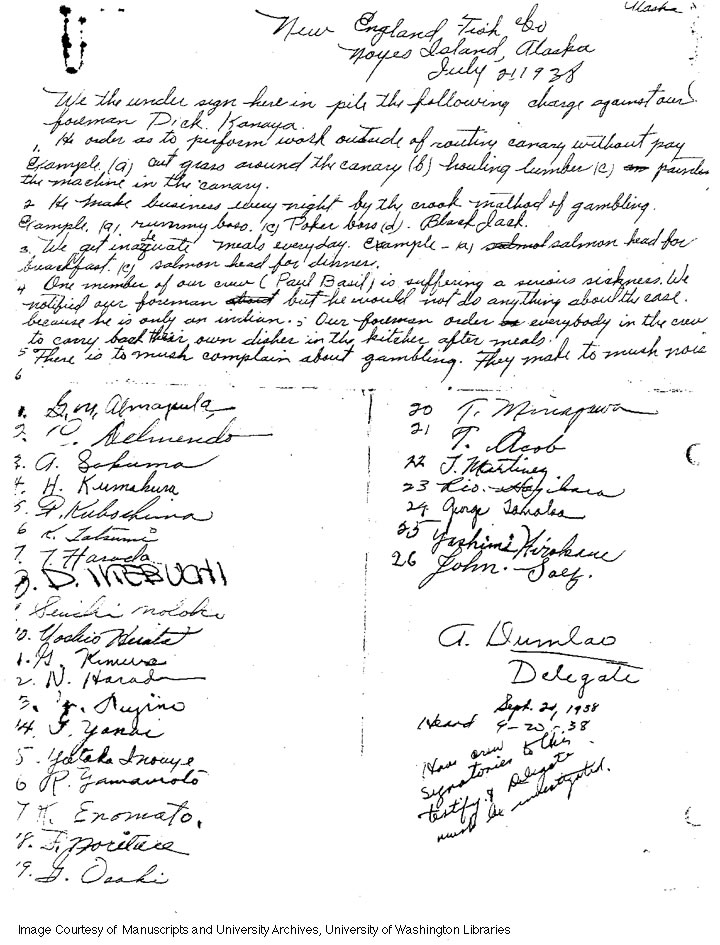 Alaska
New England Fish Co
Noyes Island, Alaska
July 21 1938
We the under sign here in pile the following charge against our
foreman Dick Kanaya.
1. He order as to perform work outside of routine canary without pay
Example, (a) cut grass around the canary (b) houling lumber (c) painter
the machine in the canary.
2 He make business every night by the crook mathod of gambling.
Example, (a), rummy boss. (c) Poker boss (d). Black Jack.
3. We get inadequate meals everyday. Example - (a) salmon head for
breackfast. (c) salmon head for dinner.
4 One member of our crew (Paul Basil) is suffering a serious sickness. We
notified our foreman but he would not do anything about the case.
because he is only an indian. ; Our foreman order everybody in the crew
to carry back their own dishes in the kitchen after meals.
5 There is to mush complain about gambling. They make to mush nois
6
1. G. M. Almazula
2. Delmendo
3. A. Sakuma
4. H. Kumakura
5. P. Kuboshima
6 K. Tatsumi
7. T. Harada
8. D. IKEBUCHI
Seiichi
10. Yoshio Hirata
1. G. Kimura
2. N. Harada
3. Fujino
14. Yanai
5. Yutaka Inouye
6 R. Yamamoto
7 K. Enomato.
18.
19. Osaki
20 T. Minagawa
21 T. Acob
22 J. Martinez
23 Rio. Hagihara
24 George
25 Yoshimi Hirokane
26 John. Saez.
A. Dumlao
Delegate
Sept. 20, 1938
Heard 9-20-38
Have crew
signatories to this
testify & Delegate
must be investigated.
Image Courtesy of Manuscripts and University Archives, University of Washington Libraries